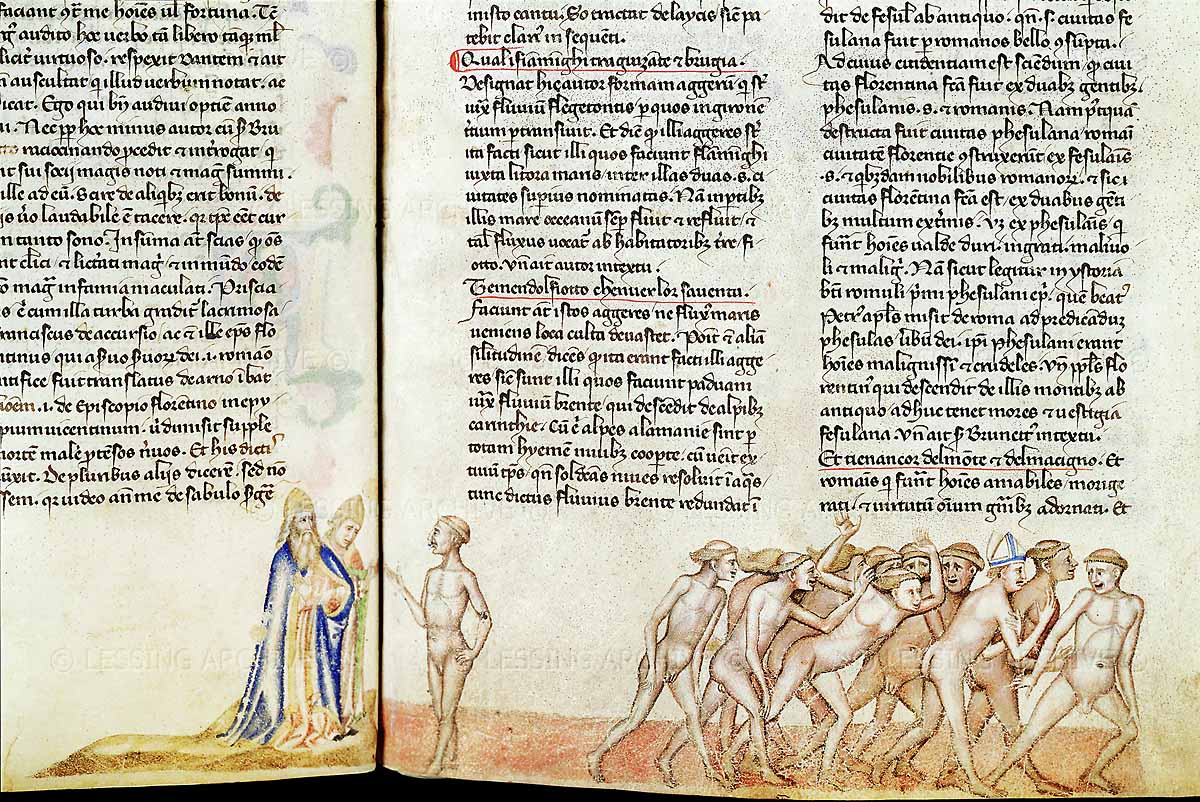 faciant q̄ me hoīes ul̄ fortuna. Tē
audito hoc verbo tā libero tāq̄ mł
licit virtuoso. respexit Dantem & ait
auscultat q̄ illud verbum notat. ac
dicat. Ego qui hȳ audivi optiē anno
Nec pp̄ hoc minus autor cū s̄ Bru
raciocinando ꝓcedit & īt̄rogat q̄
sui socij magis noti & maḡ summi.
ille ad eū. Scire de aliq̄bꝫ erit bonū. de
laudabile ē tacere. qr̄ tp̄c ēēt cur
tanto sono. In suma at̄ scias ꝙ oēs
clerici & lictati maḡ & in mūdo eodē
maḡ infamia maculati. Priscia
cum illa turba gradit̄ lacrimosa
franciscus de accursio. ac & ille ep̄s flo
tinus qui a s̄uo s̄uorꝝ dei .i. romāo
tifice fuit translatus de arno ī bat
.i. de Episcopio florētino in epy
pium vicentinum. ubi dimisit supple
mortem male ꝓtensos nervos. Et his dictis
De pluribus alijs dicerem. sed nō
possem. qr̄ video an̄ me de sabulo s̄gē
misto cantu. So tractat de laycis siē pa
tebit clare in sequenti.
Quali i fiaminghi tra guizāte & brugia.
Designat hic autor formam aggerū q̄ st̄
iuxᵃ fluviū flegetontis per quos in gironē
t̄tium p transivit. Et dīc̄ ꝙ illi aggeres st̄
ita facti sicut illi quos faciunt flamīghi
iuxta litora maris inter illas duas .s. ci
vitates supius nominatas. Nā in ptibꝫ
illis mare occeanū semp̄ fluit & refluit. &
tal̄ fluxus vocat̄ ab habitatoribꝫ t̄re fi
otto. Vn̄ ait autor in textu.
Temendo l fiotto che nver lor s aventa.
faciunt at̄ istos aggeres ne fluxꝰ maris
vemens loca culta devastet. Ponit & aliā
silitudinē dicēs ꝙ ita erant facti illi agge
res siē sunt illi quos faciunt paduani
iuxᵃ fluviū brente. qui descēdit de alpibꝫ
carinthie. Cū ē alpes alamanie sint p
totam hyemem nivibꝫ coopte. cū veīt ex
tivū tp̄s. qn̄ sol dēās nives resolvit ī aq̄s.
tunc dictus fluvius brente redundat ī
dit de fesul̄ ab antiquo. qn̄ .s. civitas fe
sulana fuit p romanos bello ꝯsūpta.
Ad cuius evidentiam est sciēdum ꝙ civi
tas florentina fcā fuit ex duabꝫ gentibꝫ
phesulanis .s. & romanis. Nam p̄tquā
destructa fuit civitas phesulana romāī
civitatē florentie ꝯstruxerūt ex fesulaīs
.s. & q̄busdam nobilibus romanorꝝ. & sic
civitas florētina fcā est. ex duabus gēti
bꝫ multum ext̄mis. Vꝫ ex phesulaīs q̄
fue͞rt hoīes valde duri. ingrati. malivo
li & maliḡ. Nā sicut legitur in ystoria
bt̄i romuli p̄mi phesulani ep̄i. quē beat̓
Petrꝰ apl̄s misit de roma ad predicādū
phesulas vbū dei. ip̄i phesulani erant
hoīes malignissīi & crudeles. Vn̄ ppl̄s flo
rentin̓ qui descendit de illis montibꝫ ab
antiquo adhuc tenet mores & vestigia
fesulana. Vn̄ ait s̄ Brunett̓ in textu.
Et tiene ancor del monte & del macigno. Et
romāīs q̄ fue͞rt hoīes amabiles. morige
rati. & virtutū oīum gn̄ibꝫ adornati. Et
© LESSING ARCHIVE